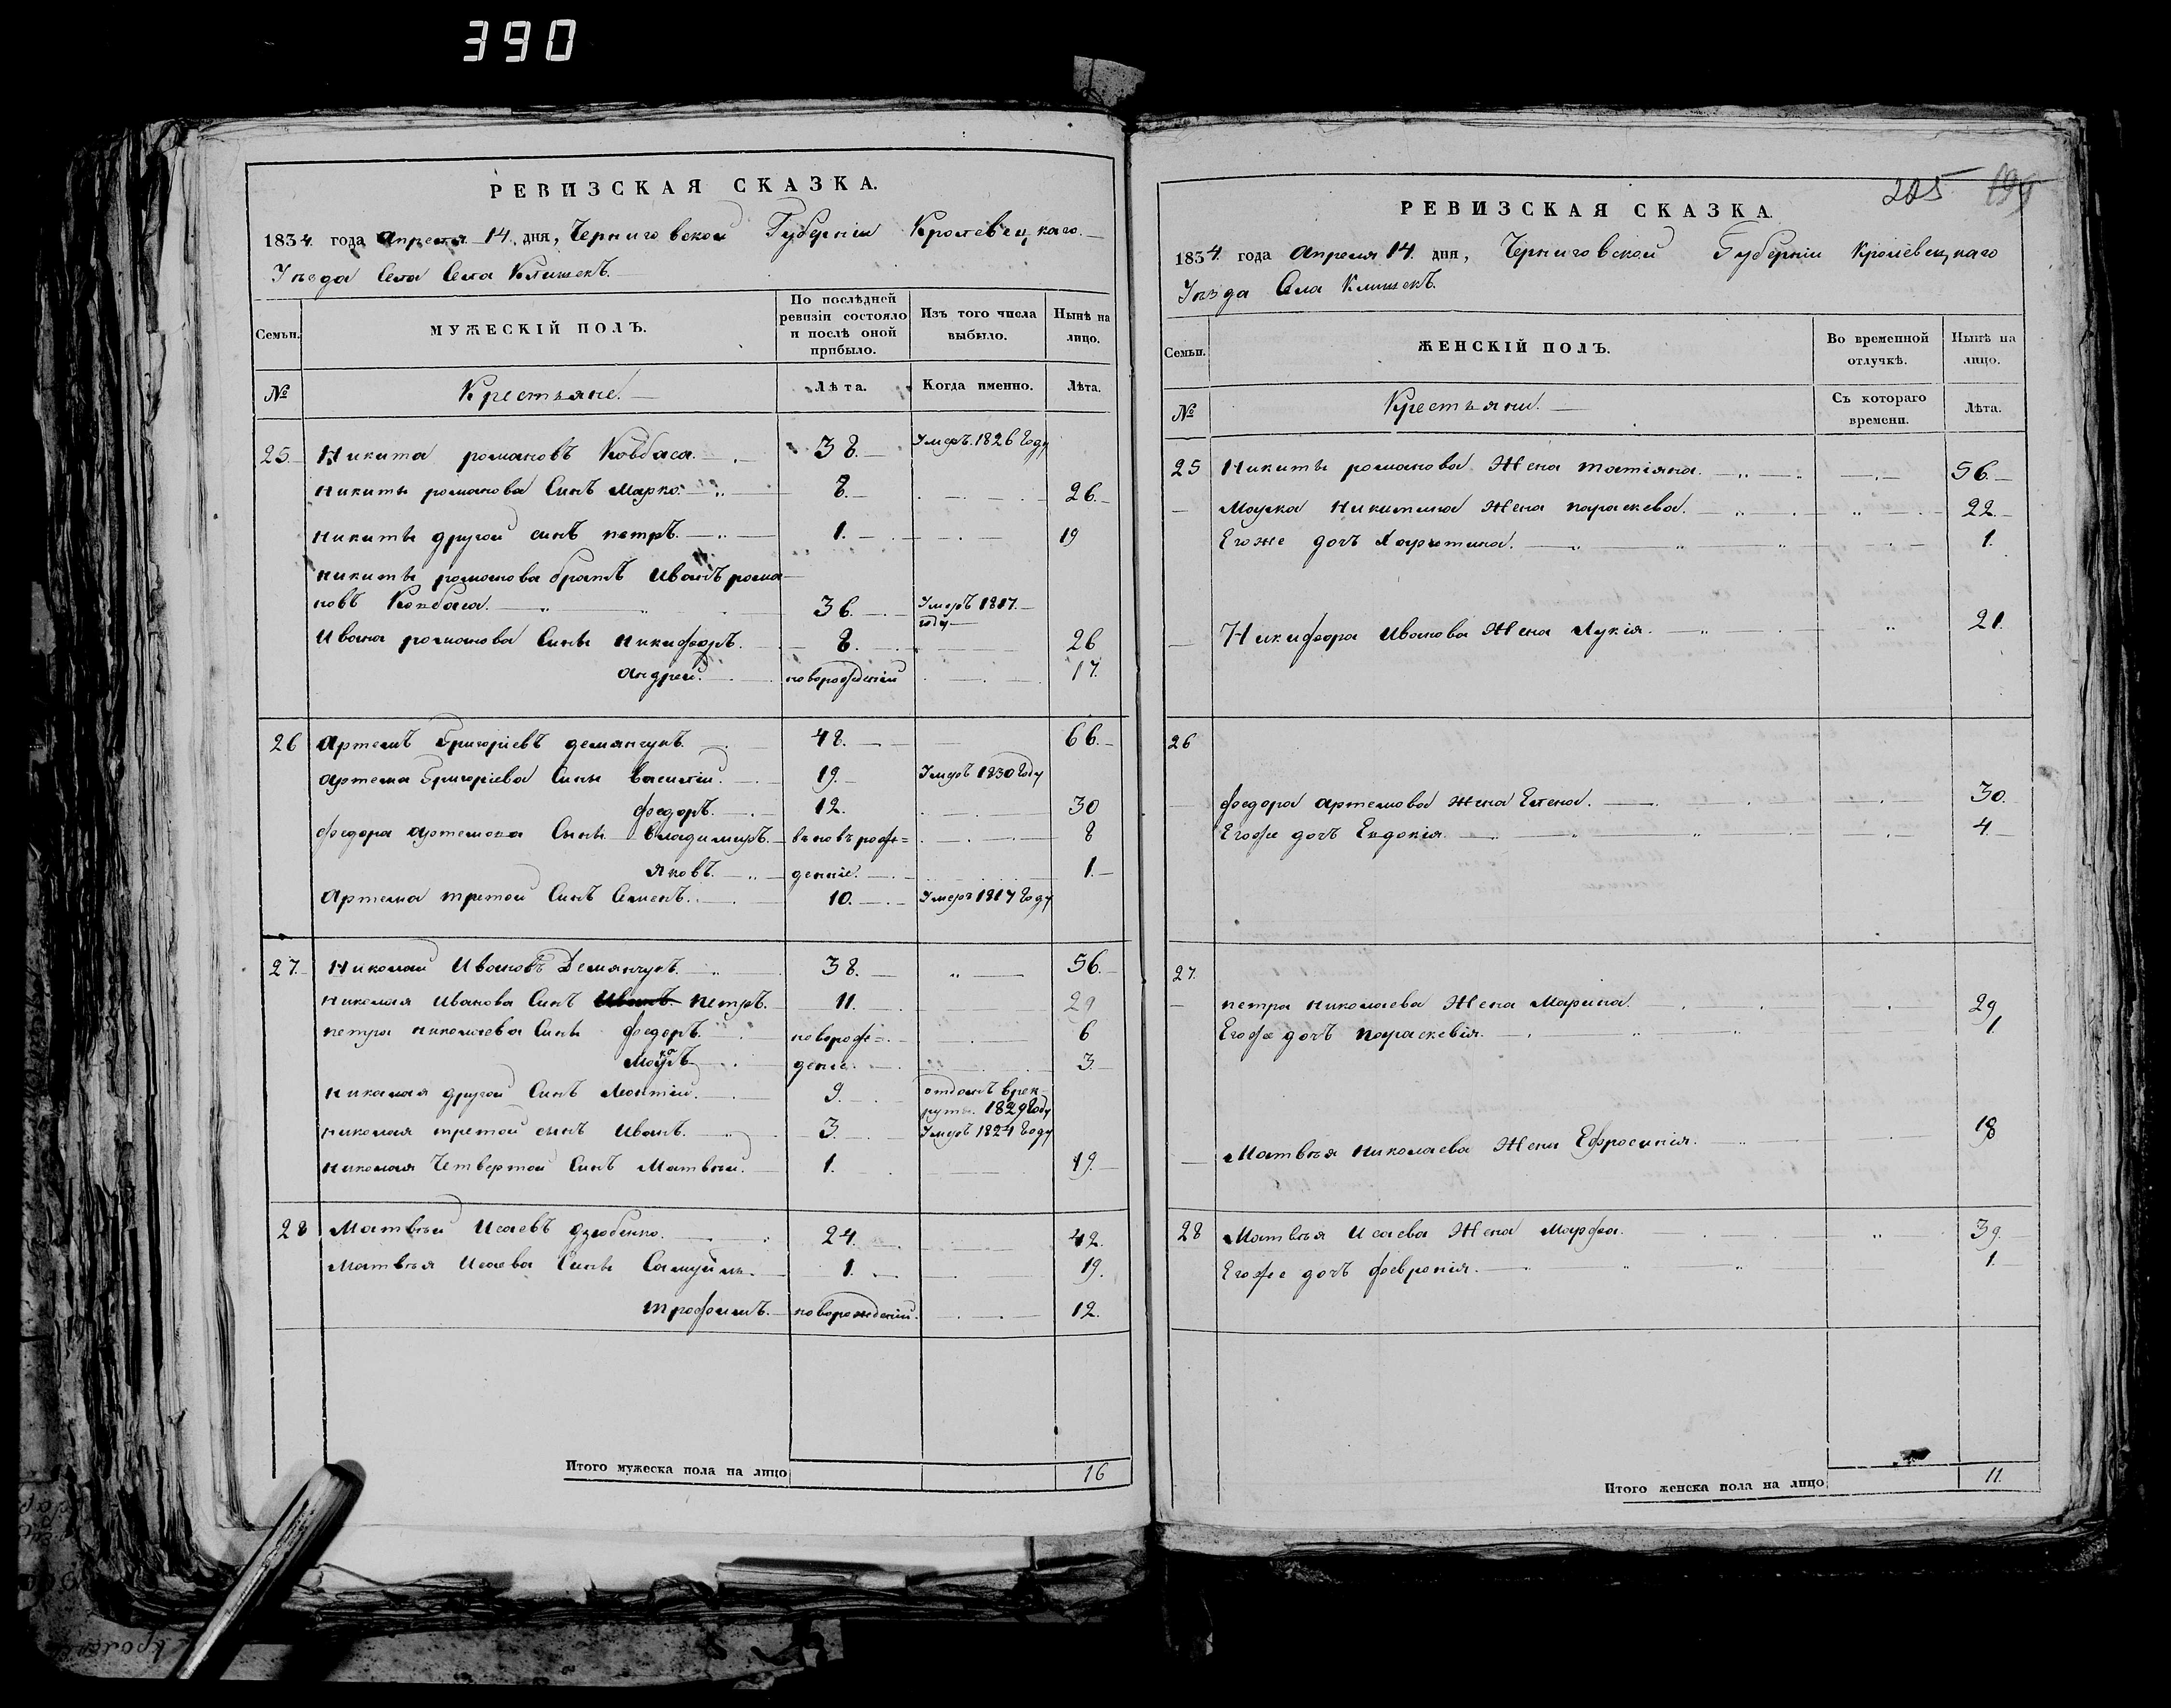 390
РЕВИЗСКАЯ СКАЗКА.
1834. года апреля 14. дня, Черниговской Губерніи Кролевецкаго.
Уезда Села Села Клишекъ.
Семьи.
МУЖЕСКІЙ ПОЛЪ.
По послѣдней ревизіи состояло и послѣ оной прибыло.
Изъ того числа выбыло.
Нынѣ на лицо.
№
Крестьяне.
Лѣта.
Когда именно.
Лѣта.
25 Никита романовъ Ковбаса. 38. Умеръ. 1826 Году
никиты романова Синъ Марко. 8. 26.
никиты другой синъ петръ. 1. 19
никиты романова братъ Иванъ рома
новъ Ковбаса. 36. Умеръ 1817. году
Ивана романова Сины никифоръ. 8. 26
андрей. новорожденій 17.
26 Артемъ Григоріевъ демянчукъ. 48. 66.
артема Григоріева Сины василій. 19. Умеръ 1830 Году
федоръ. 12. 30
федора артемова Сины Владимиръ. вьновьрож= 8
яковъ. денніе. 1.
Артема третой Синъ Семенъ. 10. Умеръ 1817 Году
27. Николай Ивановъ Демянчукъ. 38. 56.
Николая Иванова Синъ петръ. 11. 29
петра николаева Сины федоръ. новорож= 6
дение. 3.
николая другой Синъ Леонтій. 9. отданъ врек-
руты. 1829 Году
николая третой синъ Иванъ. 3. Умеръ 1821 Году
николая Четвертой Синъ Матвѣй. 1. 19.
28 Матвѣй Исаевъ дзюбенко. 24. 42.
Матвѣя Исаева Сины Самуйло. 1. 19.
трофимъ. новорожденій. 12.
Итого мужеска пола на лицо 16
225 199
РЕВИЗСКАЯ СКАЗКА.
1834. года Апреля 14. дня, Черниговской Губерніи Кролевецкаго
Уѣзда Села Клишекъ.
Семьи.
ЖЕНСКІЙ ПОЛЪ.
Во временной отлучкѣ.
Нынѣ на лицо.
№
Крестьяни.
Съ котораго времени.
Лѣта.
25 Никиты романова Жена татіяна. 56.
Марка Никитина Жена параскева. 22.
Егоже дочъ Харитина. 1.
Никифора Иванова Жена Лукія. 21.
26
федора артемова жена Елена. 30.
Егоже дочъ Евдокія. 4.
27.
петра николаева Жена Марина. 29
Егоже дочъ параскевія. 1
Матвѣя николаева Жена Ефросинія. 18
28 Матвѣя Исаева Жена Марфа. 39.
Егоже дочъ февронія. 1.
Итого женска пола на лицо 11.